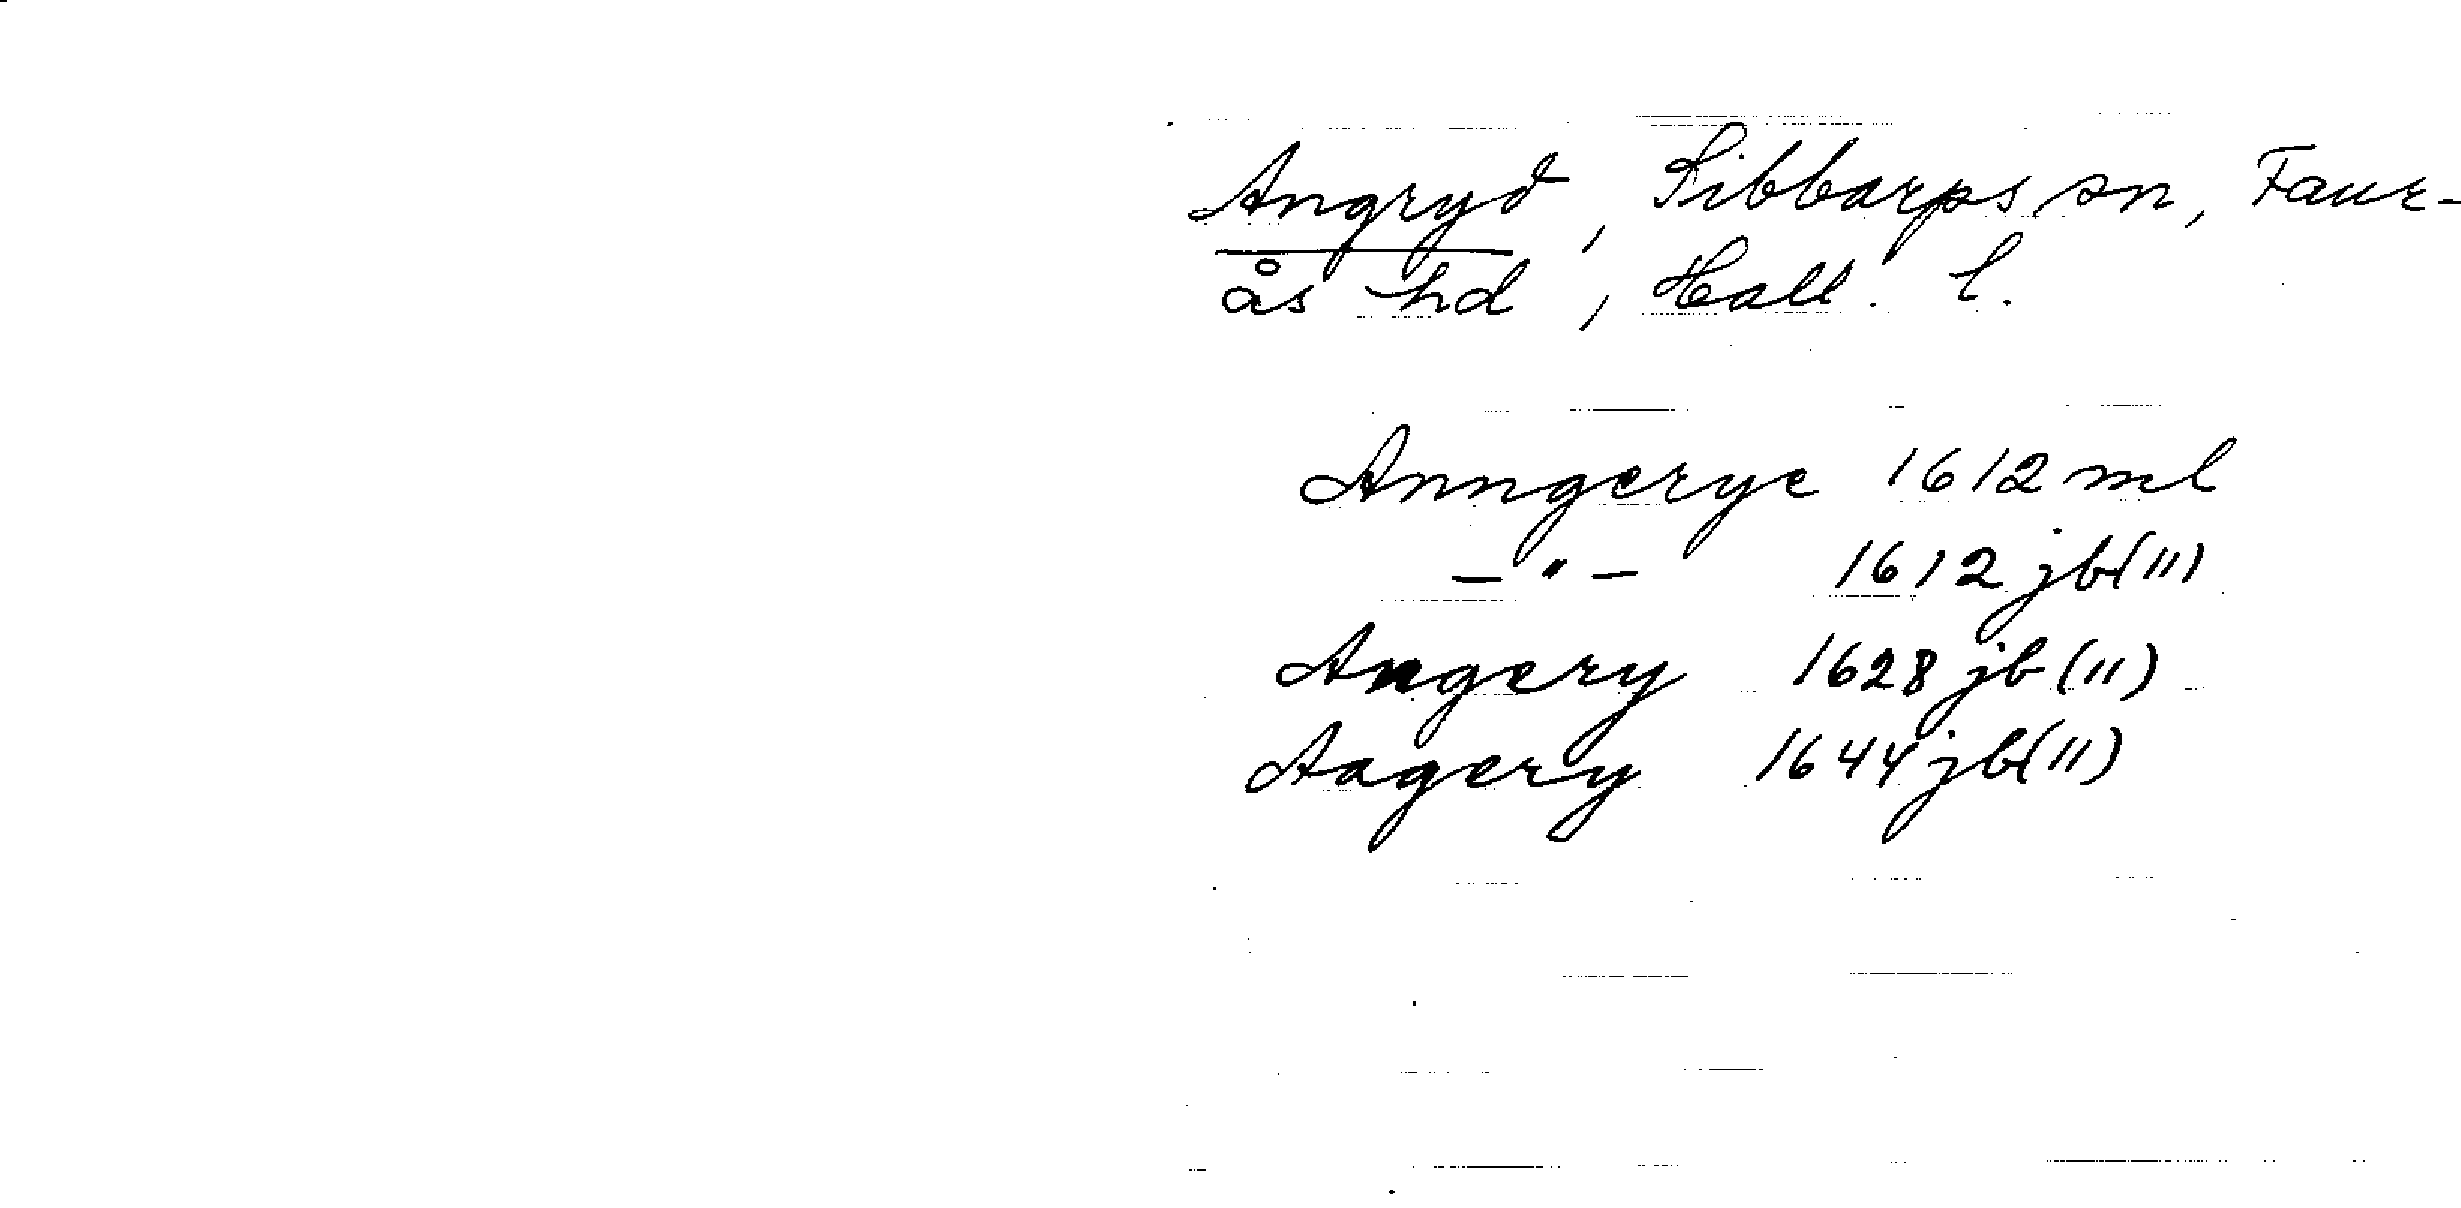 Angryd, Sibbarps sn, Faur-
ås hd, Hall. l.
Anngerye 1612 ml
– " – 1612 jb(11)
Angery 1628 jb (11)
Aagery 1644 jb(11)